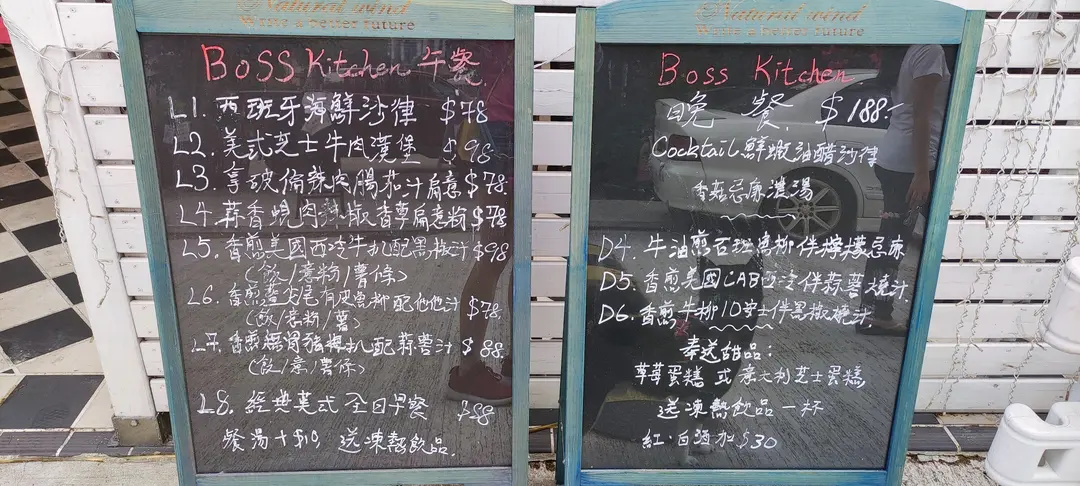 Natural wind
Write a better future
BOSS Kitchen 午餐
L1. 西班牙海鮮沙律 $78
L2. 美式芝士牛肉漢堡 $98
L3. 拿破倫辣肉腸茄汁扁意 $78
L4. 蒜香蜆肉辣椒香草扁意粉 $78
L5. 香煎美國西冷牛扒配黑椒汁 $98
(飯/意粉/薯條)
L6. 香煎 尾有皮魚柳配他他汁 $78
(飯/意粉/薯)
L7. 香煎 骨豬扒配蒜蓉汁 $88
(飯/意/薯條)
L8. 經典美式全日早餐 $88
餐湯+$10, 送凍熱飲品.
Natural wind
Write a better future
Boss Kitchen
晚餐. $188-
Cocktail鮮蝦油醋沙律
香菇忌廉濃湯
D4. 牛油煎石班魚柳伴檸檬忌廉
D5. 香煎美國CAB西冷伴蒜蓉燒汁
D6. 香煎牛排10安士伴黑椒燒汁
奉送甜品:
草莓蛋糕 或 意大利芝士蛋糕
送凍熱飲品一杯
紅.白酒加$30